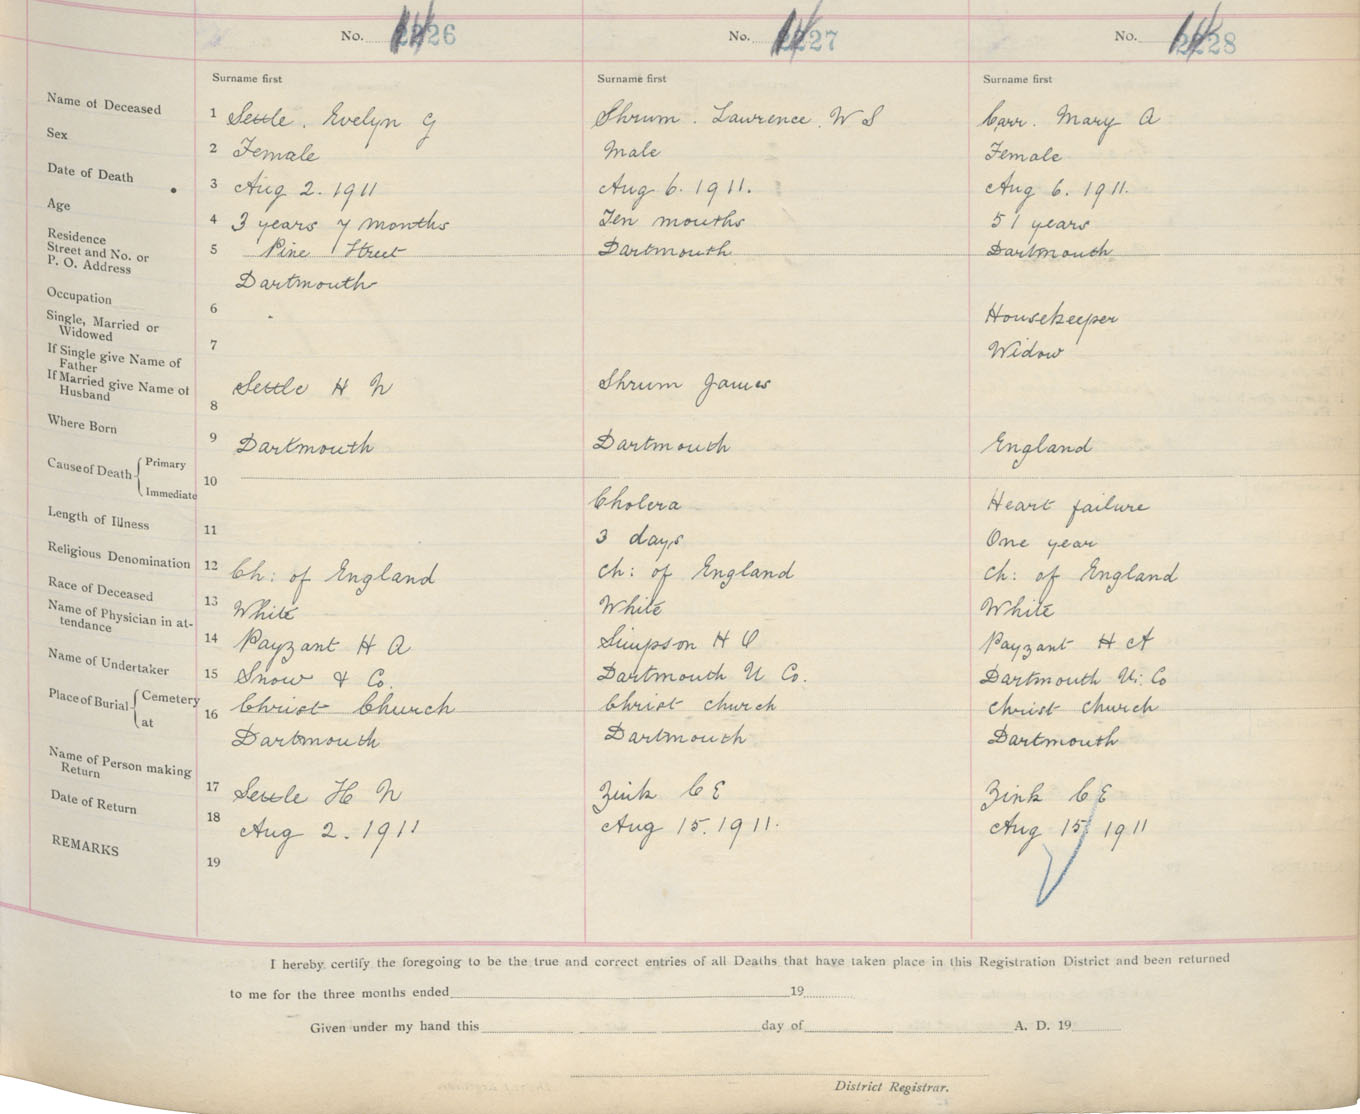 No. 2226 No. 2227 No. 2228
Surname first Surname first Surname first
Name of Deceased 1 Settle. Evelyn G Shrum. Lawrence. W S Carr. Mary A
Sex 2 Female Male Female
Date of Death 3 Aug 2. 1911 Aug 6. 1911. Aug 6. 1911.
Age 4 3 years 7 months Ten months 51 years
Residence
Street and No. or 5 Pine Street Dartmouth Dartmouth
P. O. Address
Dartmouth
Occupation 6 Housekeeper
Single, Married or
Widowed 7 Widow
If Single give Name of
Father
If Married give Name of Settle H N Shrum James
Husband 8
Where Born 9 Dartmouth Dartmouth England
Cause of Death Primary
10
Immediate Cholera Heart failure
Length of Illness 11 3 days One year
Religious Denomination 12 Ch: of England Ch: of England Ch: of England
Race of Deceased 13 White White White
Name of Physician in at-
tendance 14 Payzant H A Simpson H O Payzant H A
Name of Undertaker 15 Snow & Co. Dartmouth U Co. Dartmouth U. Co
Place of Burial Cemetery 16 Christ Church Christ church Christ church
at Dartmouth Dartmouth Dartmouth
Name of Person making
Return 17 Settle H N Zink C E Zink C E
Date of Return 18 Aug 2. 1911 Aug 15. 1911. Aug 15 1911
REMARKS 19
I hereby certify the foregoing to be the true and correct entries of all Deaths that have taken place in this Registration District and been returned
to me for the three months ended 19
Given under my hand this day of A. D. 19
District Registrar.